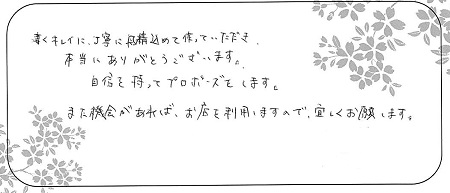 凄くキレイに、丁寧に気持込めて作っていただき、
本当にありがとうございます。
自信を持ってプロポーズをします。
また機会があれば、お店を利用しますので、宜しくお願します。